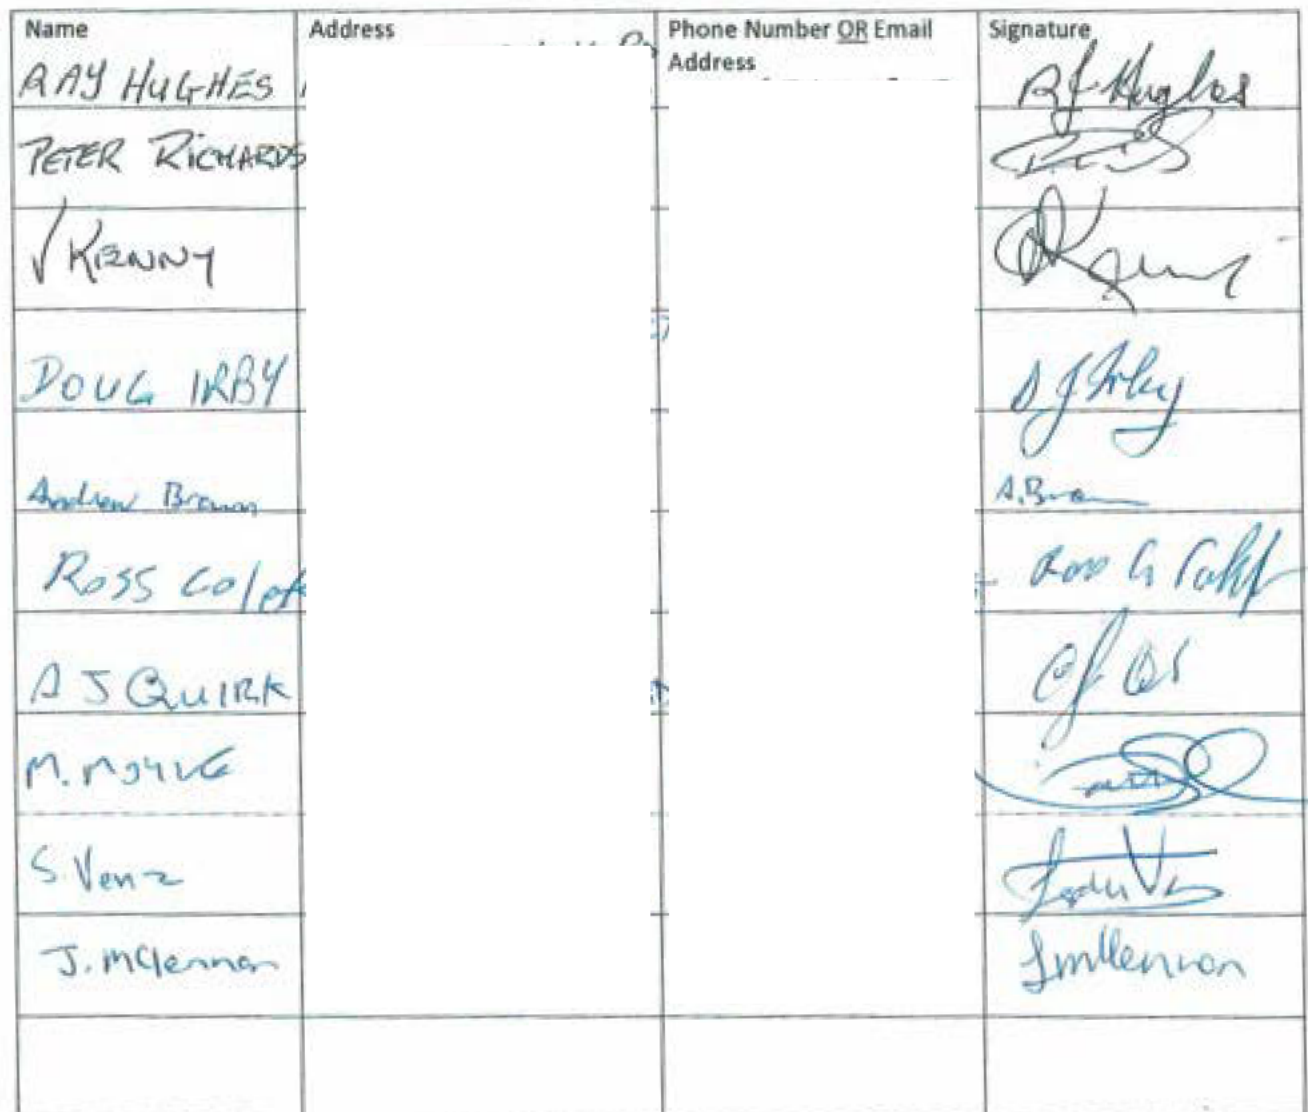 Name Address Phone Number OR Email Address Signature
RAY HUGHES RJ Hughes
PETER RICHARDS
KENNY
DOUG IRBY DJ Irby
Andrew Brown A. Brown
ROSS Ross G
A J QUIRK
M.
S. Venz
J. McLennan J McLennan